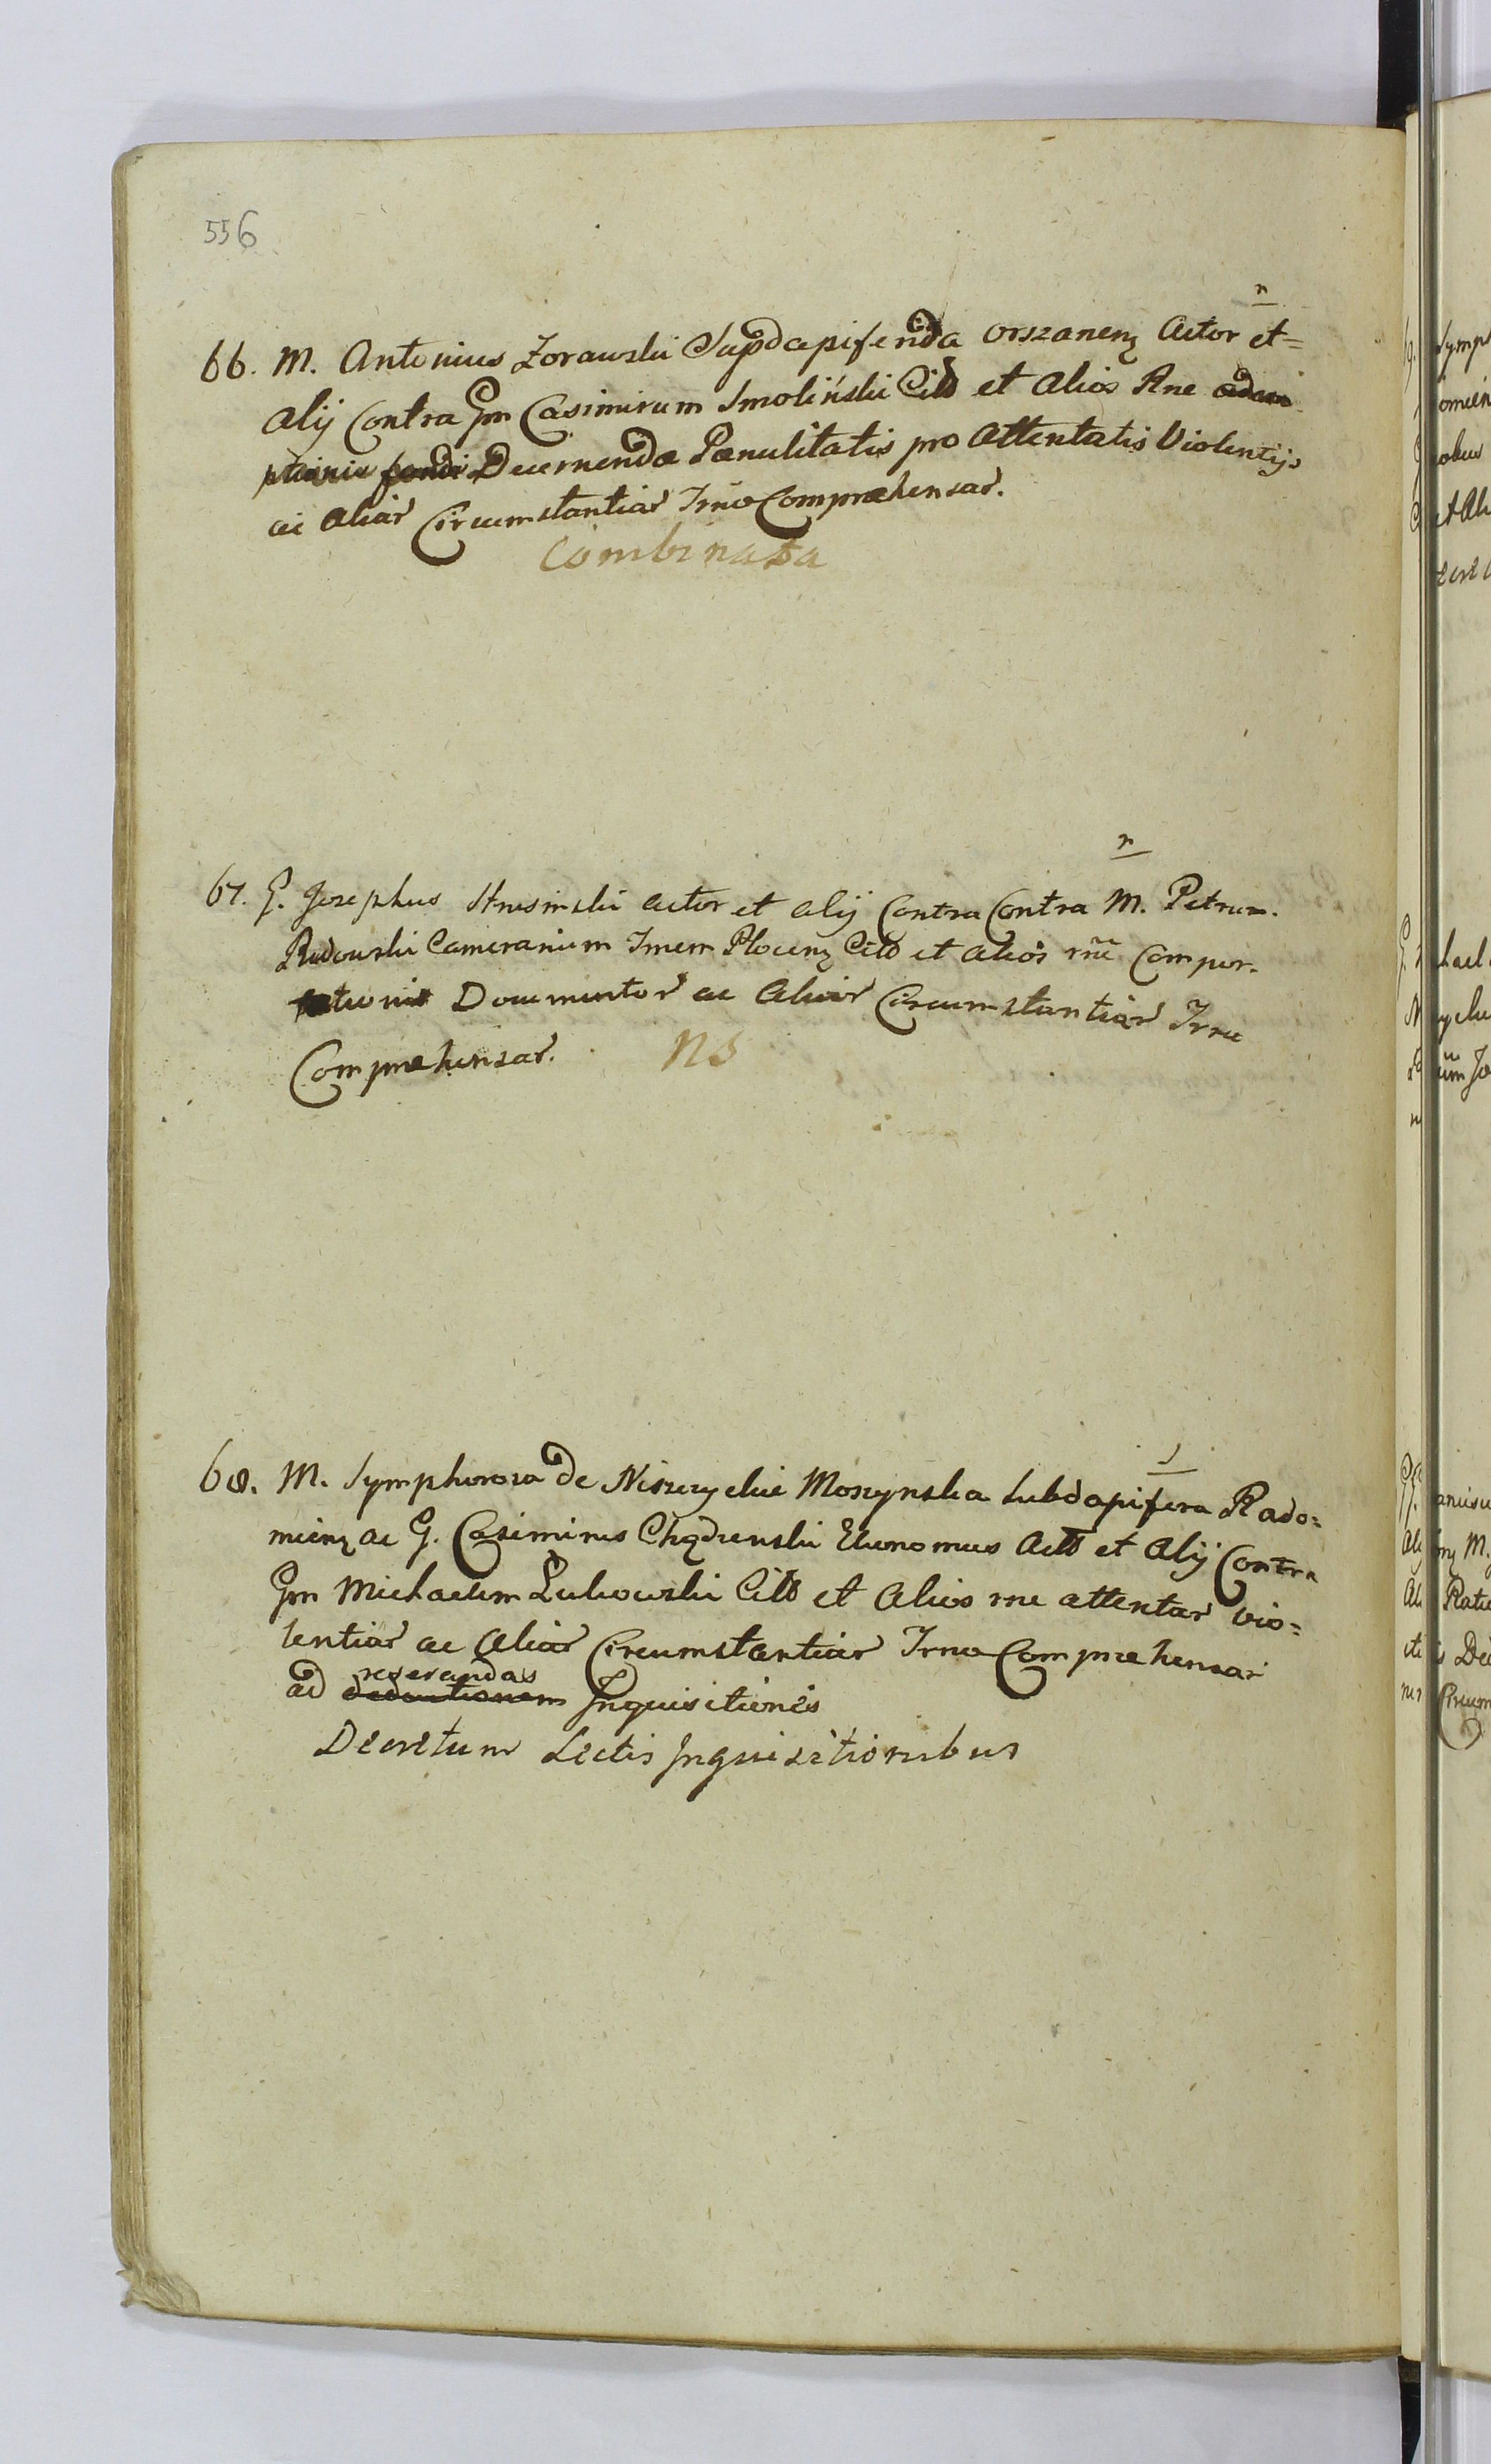 556
n
66. M. Antonius Zorawski Supdapiferida Orszanenz Actor et=
Alij Contra Gm Casimirum Smoliński Citd et Alios Rne
fundi Decernendæ Pænulitatis pro Attentatis Violentijs
ac Aliar Circumstantiar Irno Comprehensar.
Combinata
n
67. G. Josephus actor et Alij Contra Contra M. Petrum
Rudowski Camerarium Tnem Plocenz Citd et Alios rne Compor-
tationis Documentor ac Aliar Circumstantiar Irno
Comprehensar. NS
68. M. Symphorosa de Niszczyckie Moszynska Subdapifera Rado=
mienz ac G. Casimirus Chądzenski Ekonomus Actd et Alij Contra
Gm Michaelem Lukowski Citd et Alios rne attentar vio=
lentiar ac Aliar Circumstantiar Irno Comprehensar
reserandas
ad deductionem Inquisitiones
Decretum Lectis Inquisitionibus